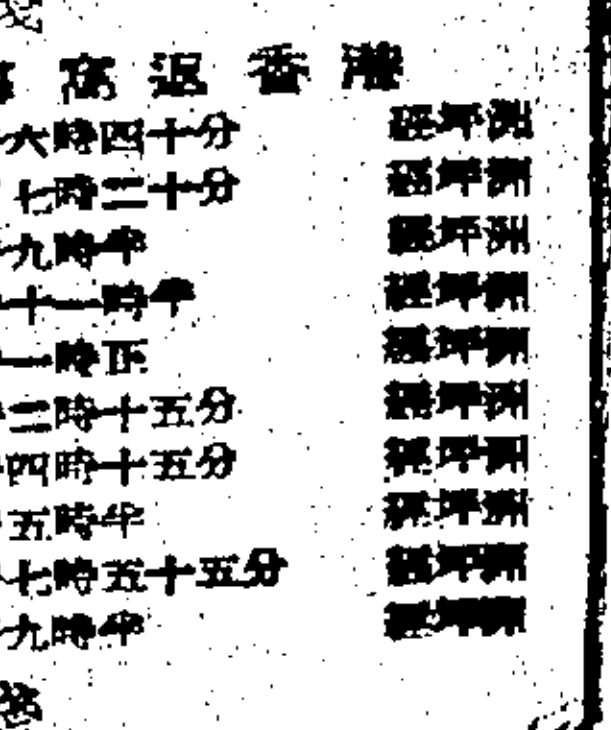 窩返香港
六時四十分 經坪洲
七時二十分 經坪洲
九時半 經坪洲
十一時半 經坪洲
一時正 經坪洲
二時十五分 經坪洲
四時十五分 經坪洲
五時半 經坪洲
七時五十五分 經坪洲
九時半 經坪洲